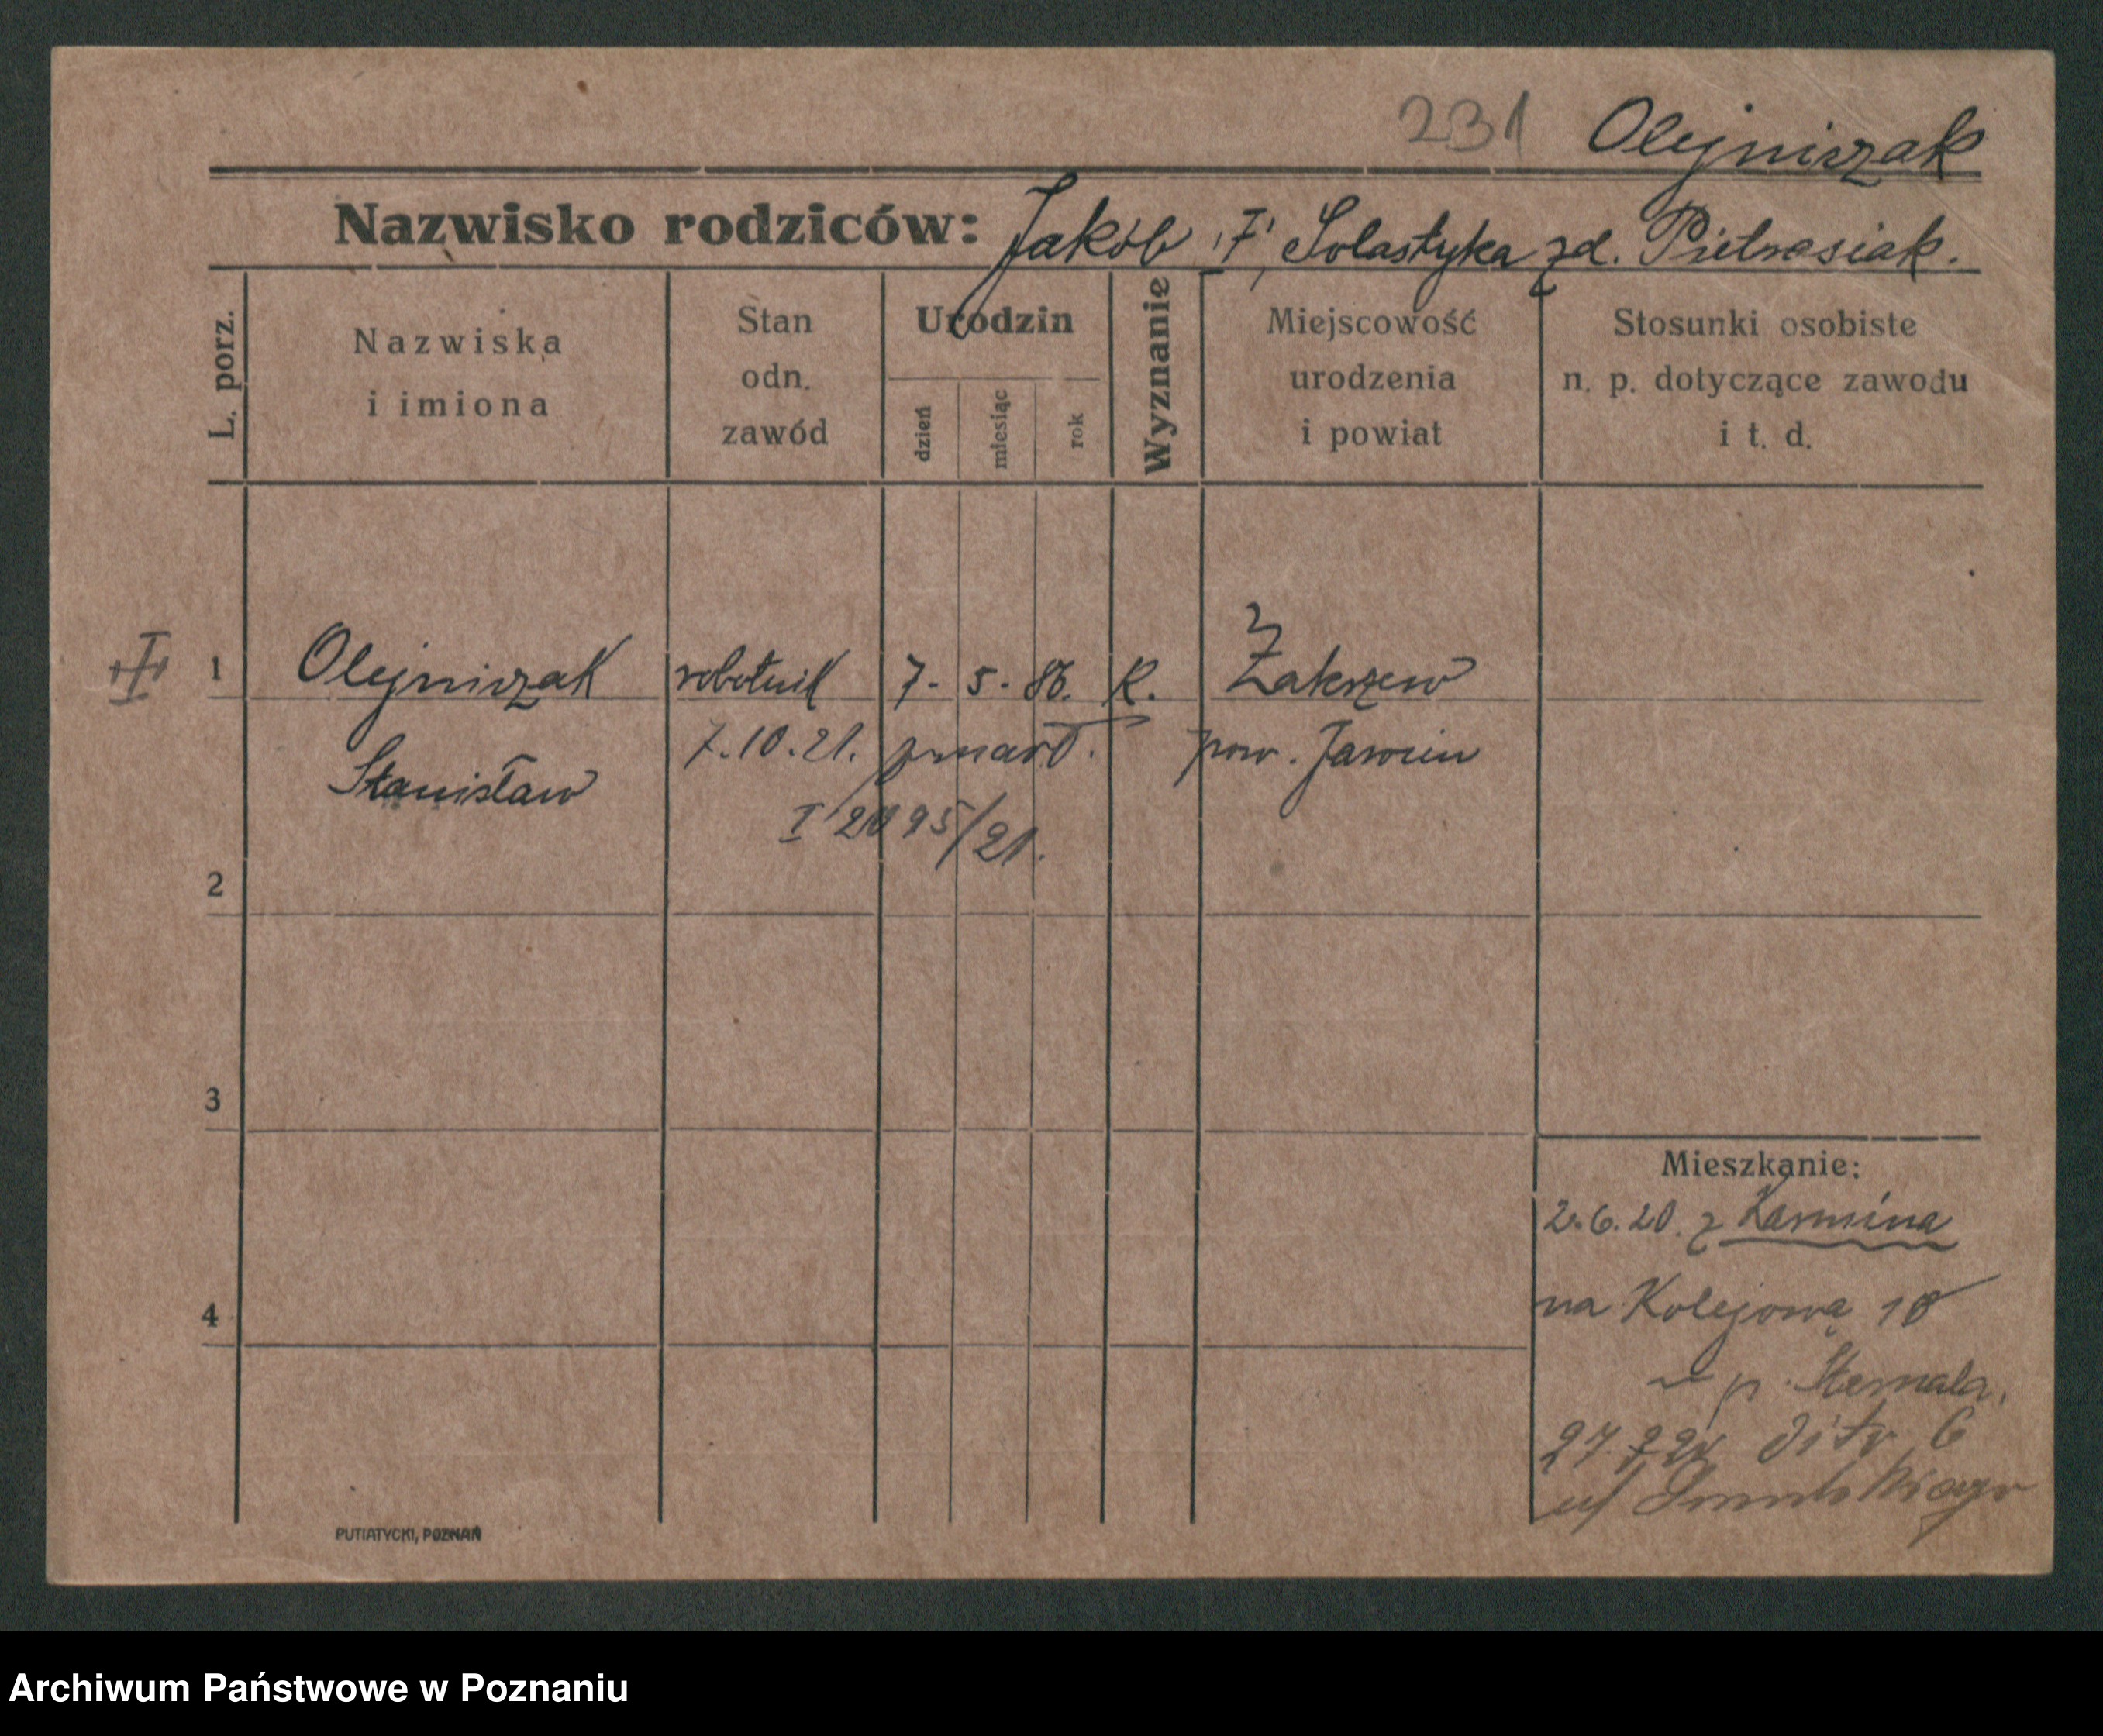 231 Olejniczak
Nazwisko rodziców: Jakób i Solastyka zd. Pietrasiak.
L. porz.
Nazwiska
i imiona
Stan
odn.
zawód
Urodzin
dzień
miesiąc
rok
Wyznanie
Miejscowość
urodzenia
i powiat
Stosunki osobiste
n. p. dotyczące zawodu
i t. d.
1 Olejniczak robotnik 7. 5. 86. K. Zakrzew
7.10.21. zmarł. pow. Jarocin
Stanisław
I 2095/21.
2
3
4
Mieszkanie:
2.6.20. z Karmina
na Kolejową 18
p.
27. dito 6
PUTIATYCKI, POZNAŃ
Archiwum Państwowe w Poznaniu